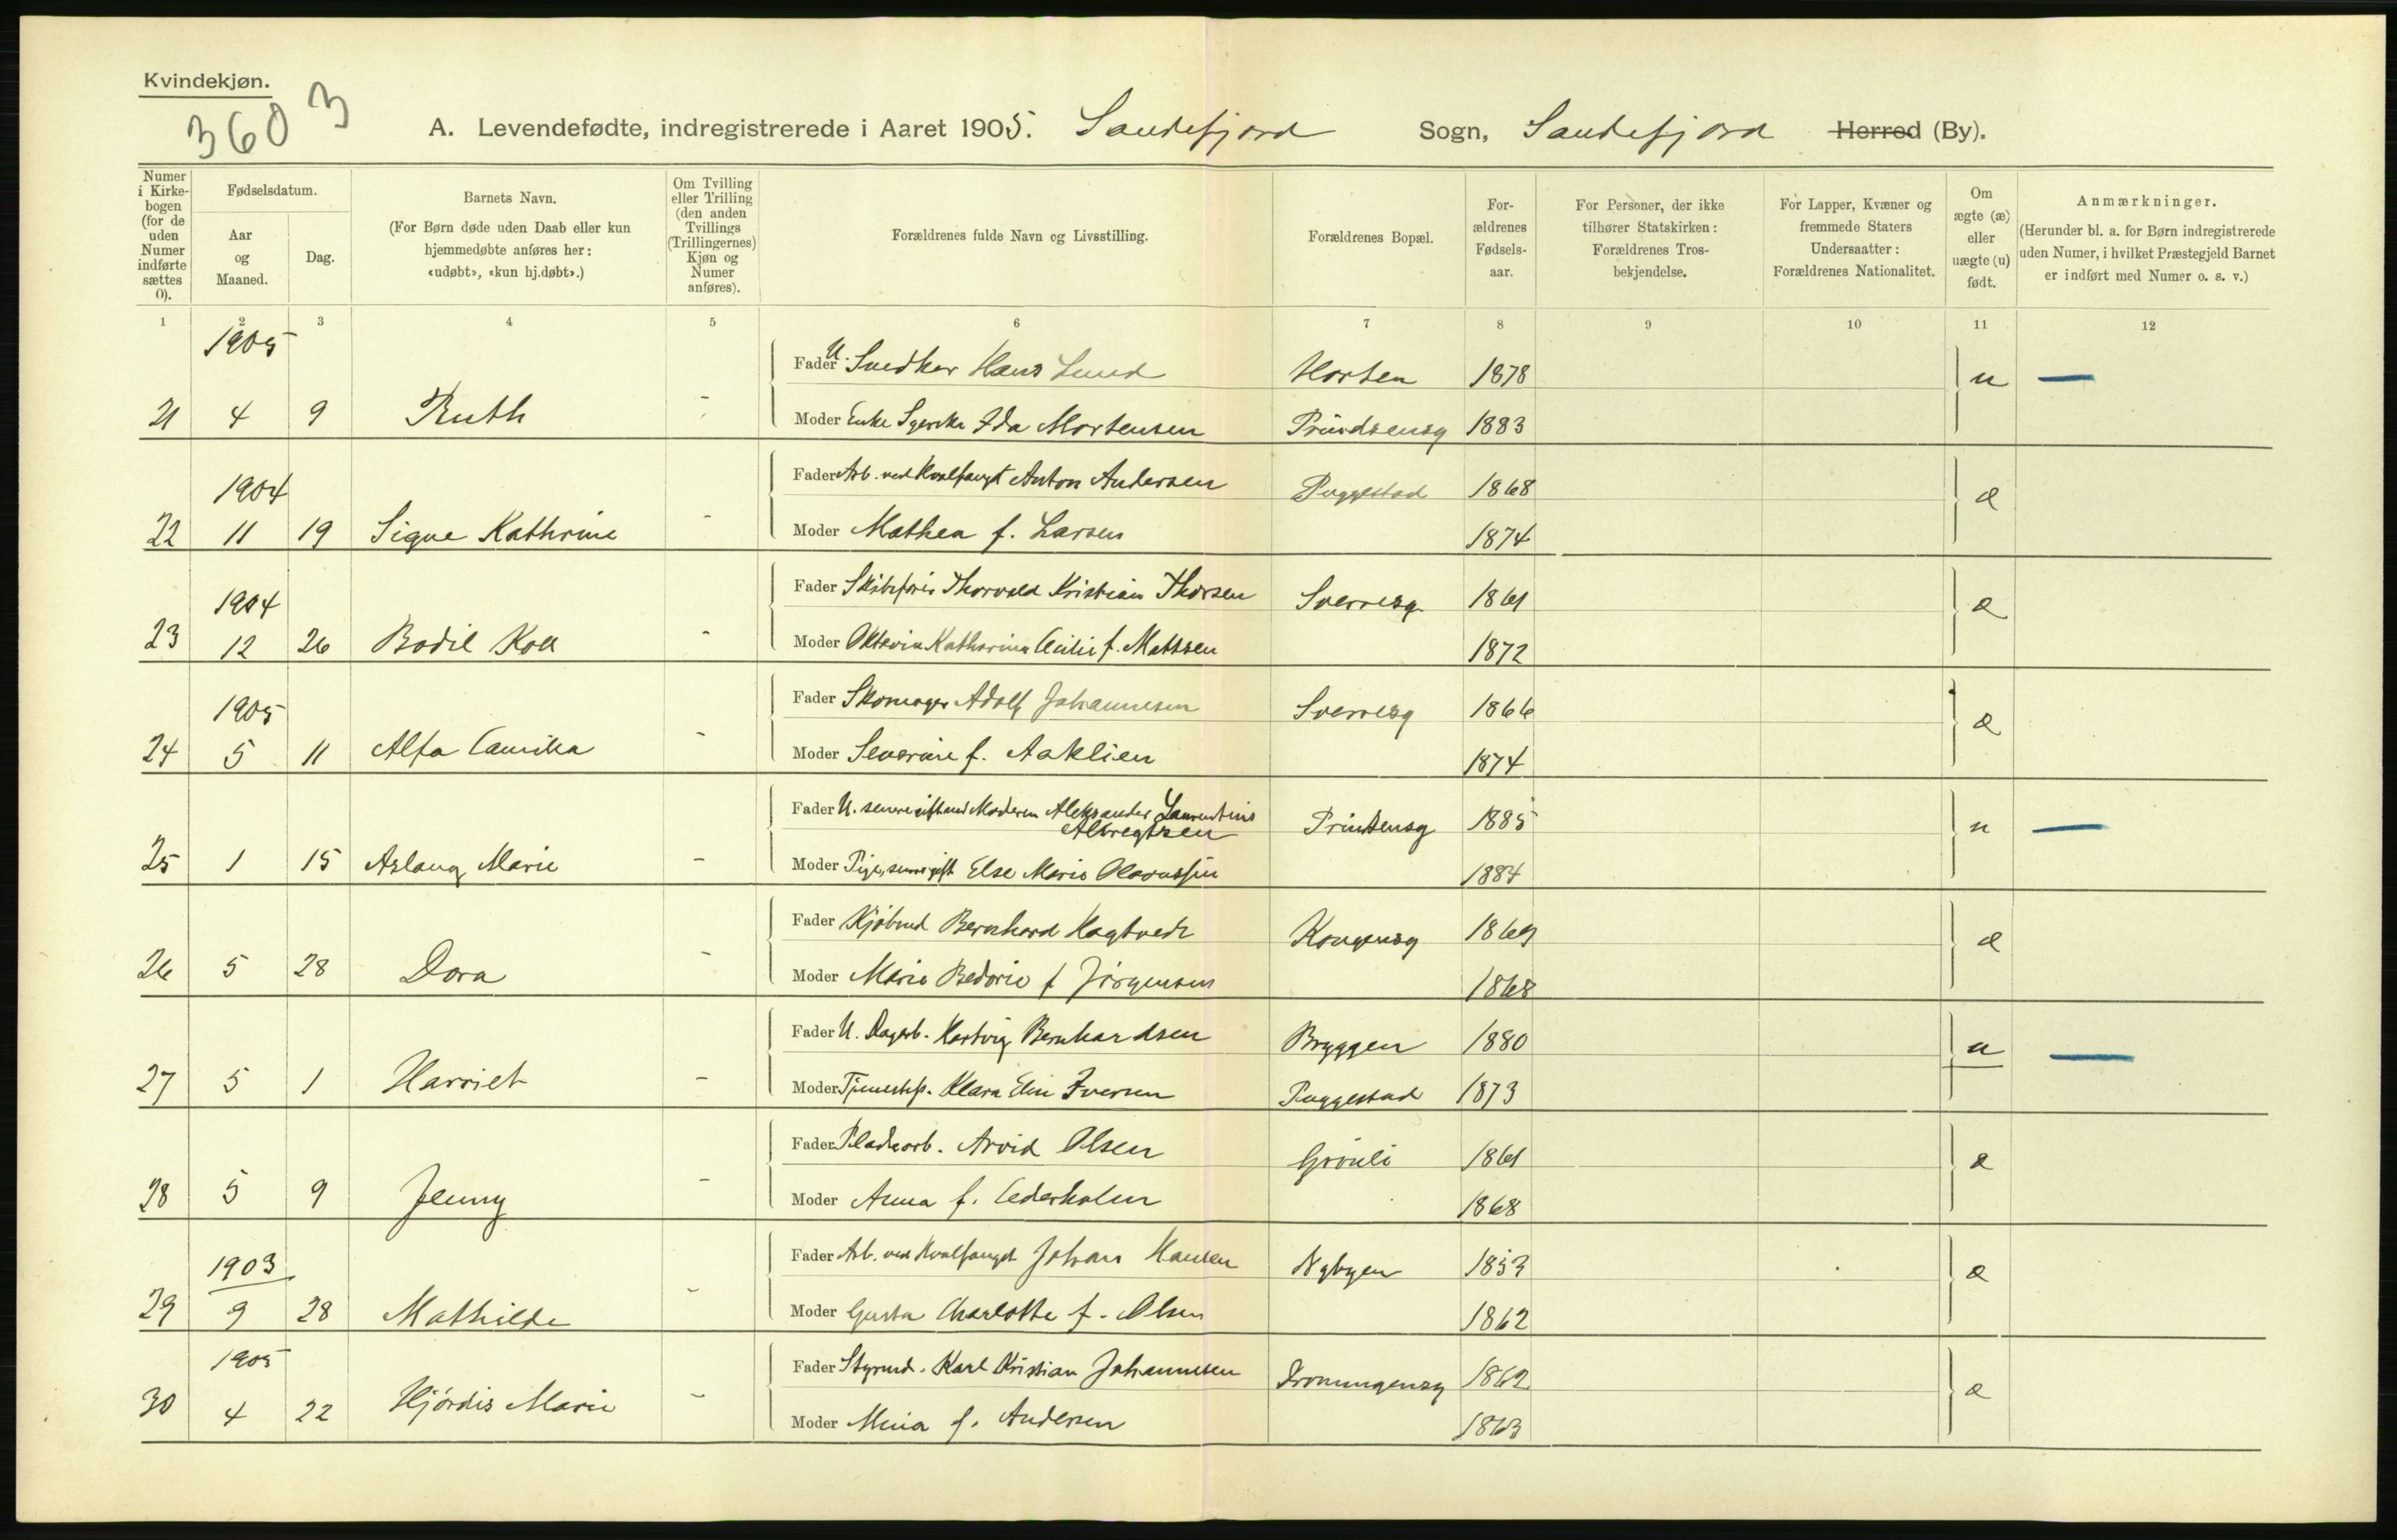 Kvindekjøn.
3603
A. Levendefødte, indregistrerede i Aaret 1905. Sandefjord Sogn, Sandefjord Herred (By).
Numer i Kirkebogen (for de uden Numer indførte sættes 0).
Fødselsdatum.
Aar og Maaned.
Dag.
Barnets Navn.
(For Børn døde uden Daab eller kun hjemmedøbte anføres her: «udøbt», «kun hj.døbt».)
Om Tvilling eller Trilling (den anden Tvillings (Trillingernes) Kjøn og Numer anføres).
Forældrenes fulde Navn og Livsstilling.
Forældrenes Bopæl.
Forældrenes Fødselsaar.
For Personer, der ikke tilhører Statskirken: Forældrenes Trosbekjendelse.
For Lapper, Kvæner og fremmede Staters Undersaatter: Forældrenes Nationalitet.
Om ægte (æ) eller uægte (u) født.
Anmærkninger.
(Herunder bl. a. for Børn indregistrerede uden Numer, i hvilket Præstegjeld Barnet er indført med Numer o. s. v.)
1 2 3 4 5 6 7 8 9 10 11 12
1905
Fader U. Snedker Hans Lund Horten 1878 u —
21 4 9 Ruth - Moder Enke Syerske Ida Mortensen Prindsensg 1883
1904
Fader Arb. ved Hvalfangst Anton Andersen Puggestad 1868 æ
22 11 19 Signe Kathrine - Moder Mathea f. Larsen 1874
1904
Fader Skibsfører Thorvald Kristian Thorsen Sverresg 1861 æ
23 12 26 Bodil Koll - Moder Oktavia Katharina Cecilie f. Mattsen 1872
1905
Fader Skomager Adolf Johannesen Sverresg 1866 æ
24 5 11 Alfa Camilla - Moder Severine f. Aaklien 1874
Fader U. senere gift med Moderen Aleksander Laurentius Albregtsen Prinsensg 1885 u —
25 1 15 Aslaug Marie - Moder Pige, senere gift Else Marie Olavussen 1884
Fader Kjøbmd Bernhard Hagtvedt Kongensg 1869 æ
26 5 28 Dora - Moder Marie Bedorie f Jørgensen 1868
Fader U. Dagarb. Hartvig Bernhardsen Bryggen 1880 u —
27 5 1 Harriet - Moder Tjenestep. Klara Elise Iversen Puggestad 1873
Fader Pladearb. Arvid Olsen Grønli 1861 æ
28 5 9 Jenny - Moder Anna f. Cederholm 1868
1903
Fader Arb. ved Hvalfangst Johan Hansen Nybyen 1853 æ
29 9 28 Mathilde - Moder Gusta Charlotte f. Olsen 1862
1905
Fader Styrmd. Karl Kristian Johannesen Dronningensg 1862 æ
30 4 22 Hjørdis Marie - Moder Mina f. Andersen 1863